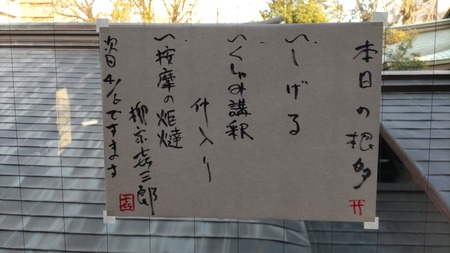 本日の根多
一、しげる
一、くしゃみ講釈
仲入り
一、按摩の炬燵
柳家喜三郎
次回4/6ですます